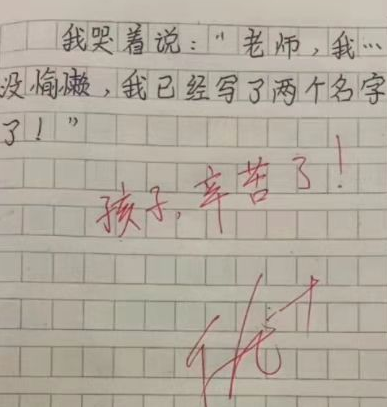 我哭着说：“老师，我…
没偷懒，我已经写了两个名字
了！”
孩子，辛苦了！
优+